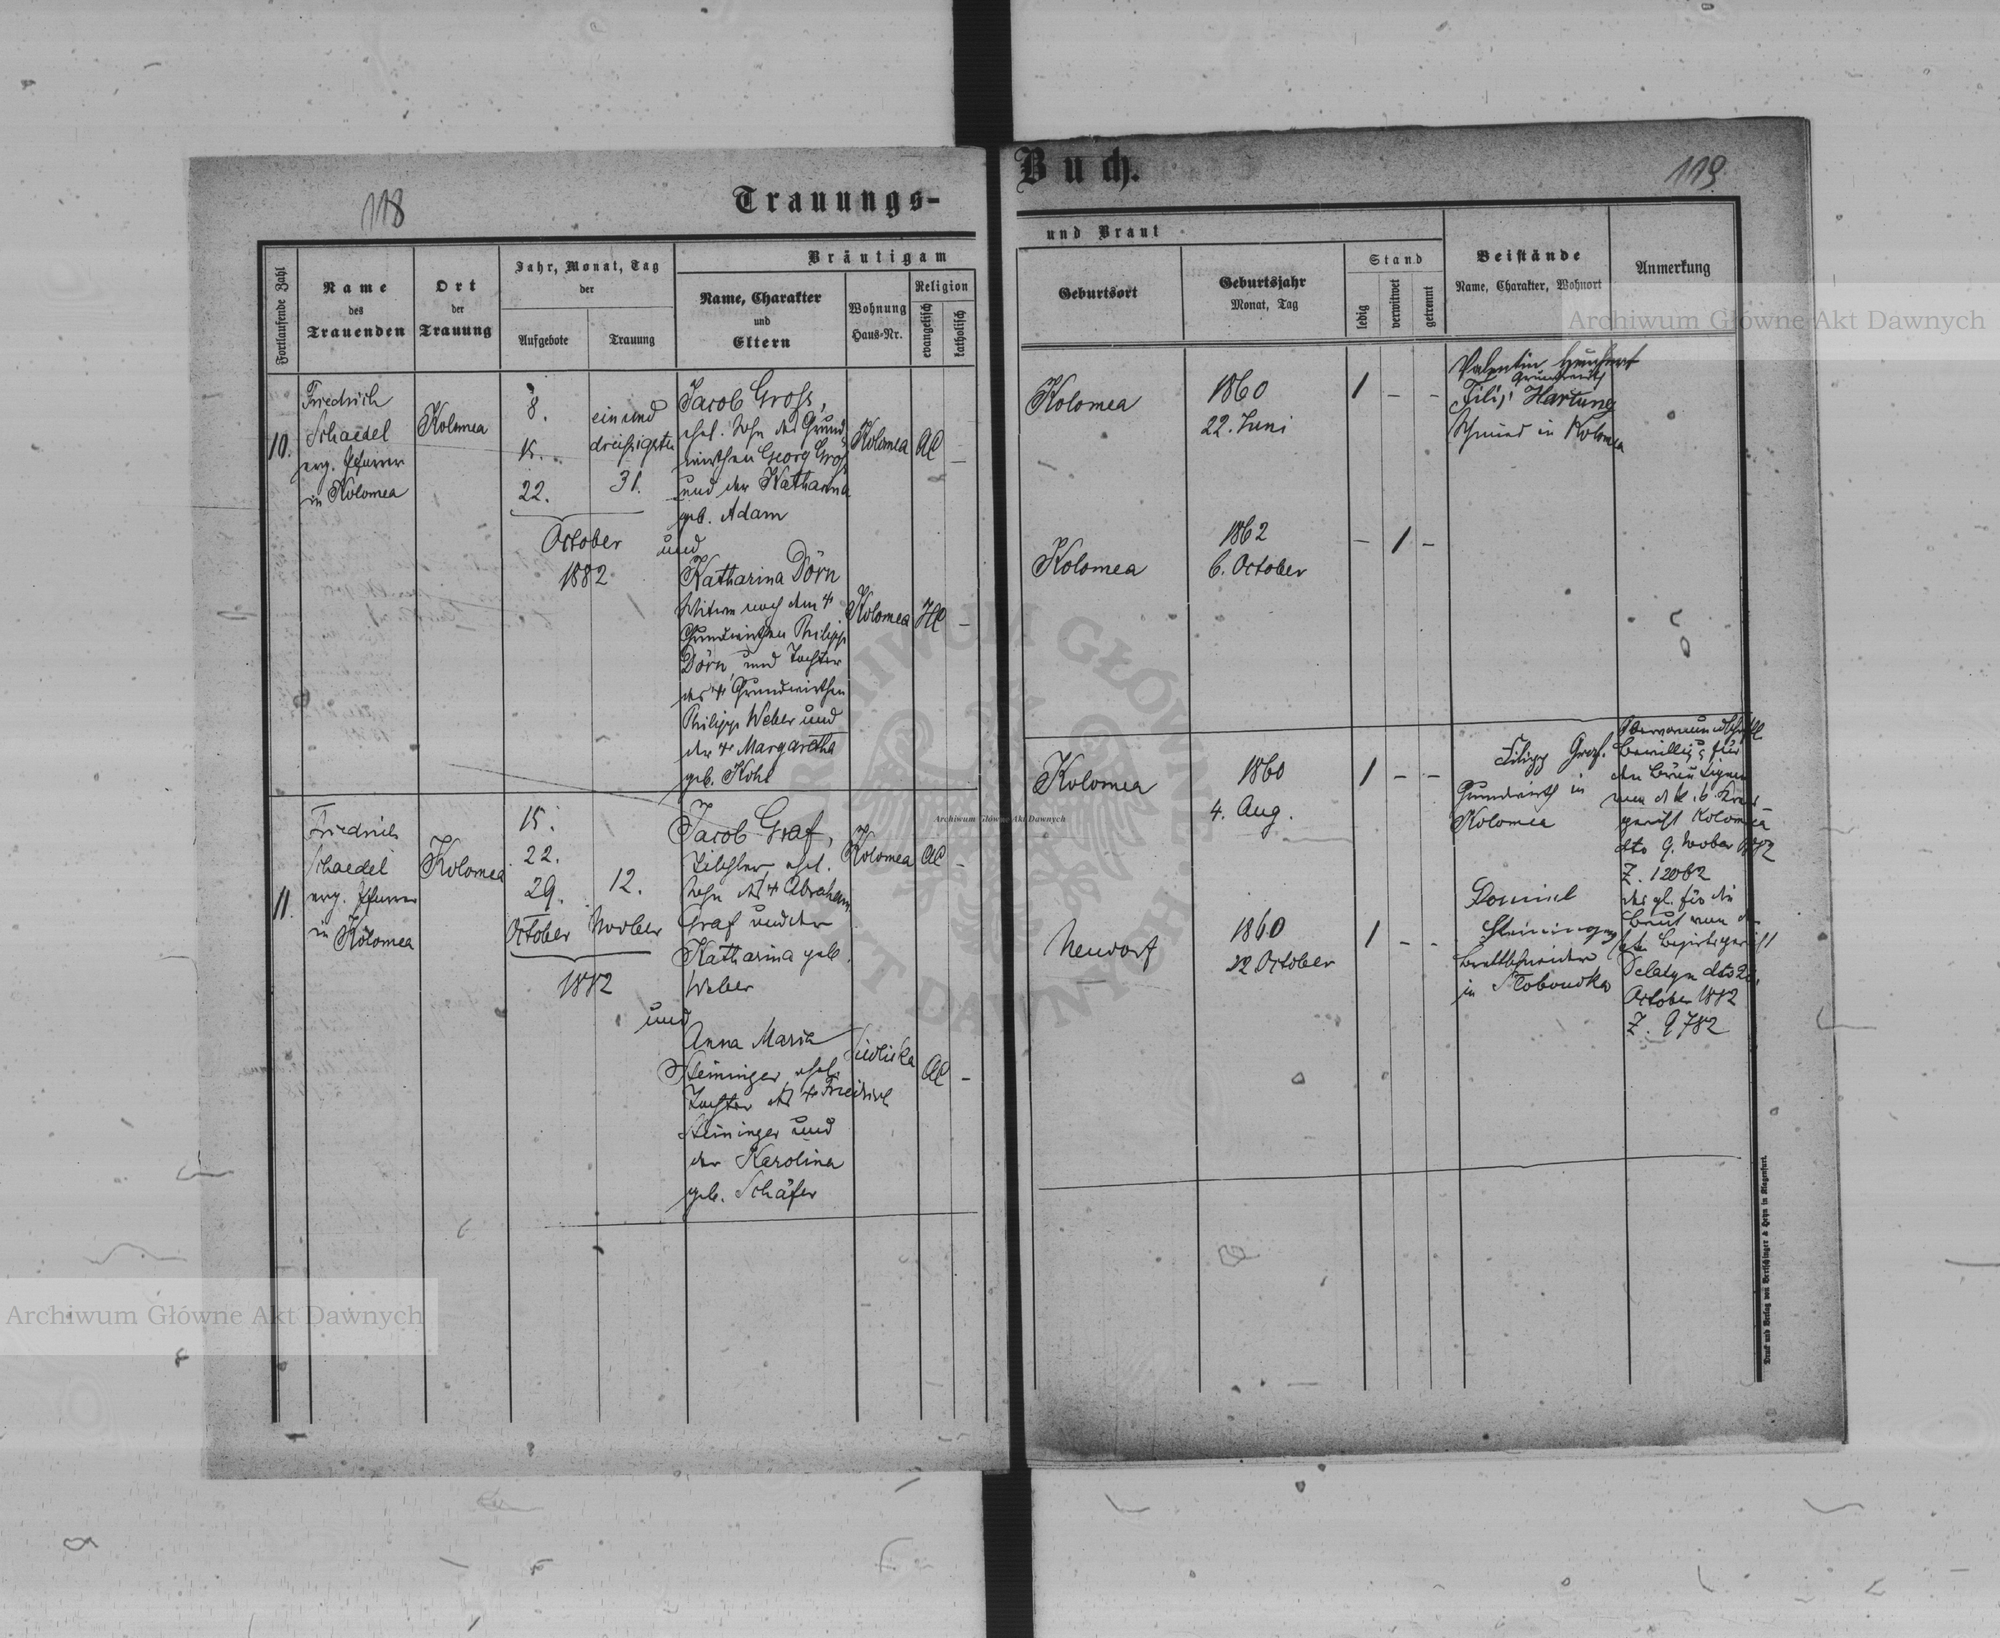 118
Trauungs-
Fortlaufende Zahl
Name
des
Trauenden
Ort
der
Trauung
Jahr, Monat, Tag
der
Aufgebote
Trauung
Bräutigam
Name, Charakter
und
Eltern
Wohnung
Haus-Nr.
Religion
evangelisch
katholisch
10.
Friedrich
Schaedel
evg. Pfarrer
in Kolomea
Kolomea
8.
15.
22.
ein und
dreißigsten
31.
October
1882
Jacob Groß,
ehel. Sohn des Grund-
wirthen Georg Groß
und der Katharina
geb. Adam
und
Katharina Dörn
Witwe nach dem +
Grundwirthen Philipp
Dörn und Tochter
des + Grundwirthen
Philipp Weber und
der + Margaretha
geb. Kohl
Kolomea
AC
–
Kolomea
HC
–
11.
Friedrich
Schaedel
evg. Pfarrer
in Kolomea
Kolomea
15.
22.
29.
October
12.
Novber
1882
Jacob Graf,
Tischler, ehel.
Sohn des + Abraham
Graf und der
Katharina geb.
Weber
und
Anna Maria
Steininger ehel.
Tochter des + Friedrich
Steininger und
der Karolina
geb. Schäfer
Kolomea
AC
–
Siedliska
AC
–
Buch.
119
und Braut
Geburtsort
Geburtsjahr
Monat, Tag
Stand
ledig
verwitwet
getrennt
Beistände
Name, Charakter, Wohnort
Anmerkung
Kolomea
1860
22. Juni
1 – –
Valentin
Grundwirth
Filip Hartung
Schmied in Kolomea
Kolomea
1862
6. October
– 1 –
Kolomea
1860
4. Aug.
1 – –
Filipp Graf.
Grundwirth in
Kolomea
Neudorf
1860
22 October
1 – –
Daniel
Steininger
Brettschneider
in Slobodka
Bewillig. für
den Bräutigam
von d. k. k. Kreis-
gericht Kolomea
dto 9. Novber 1882
Z. 12062
desgl. für die
Braut vom
Bezirksgericht
Delatyn dto
October 1882
Z. 9782
Druck und Verlag von Bertschinger & Heyn in Klagenfurt.
Archiwum Główne Akt Dawnych
Archiwum Główne Akt Dawnych
Archiwum Główne Akt Dawnych
ARCHIWUM GŁÓWNE AKT DAWNYCH